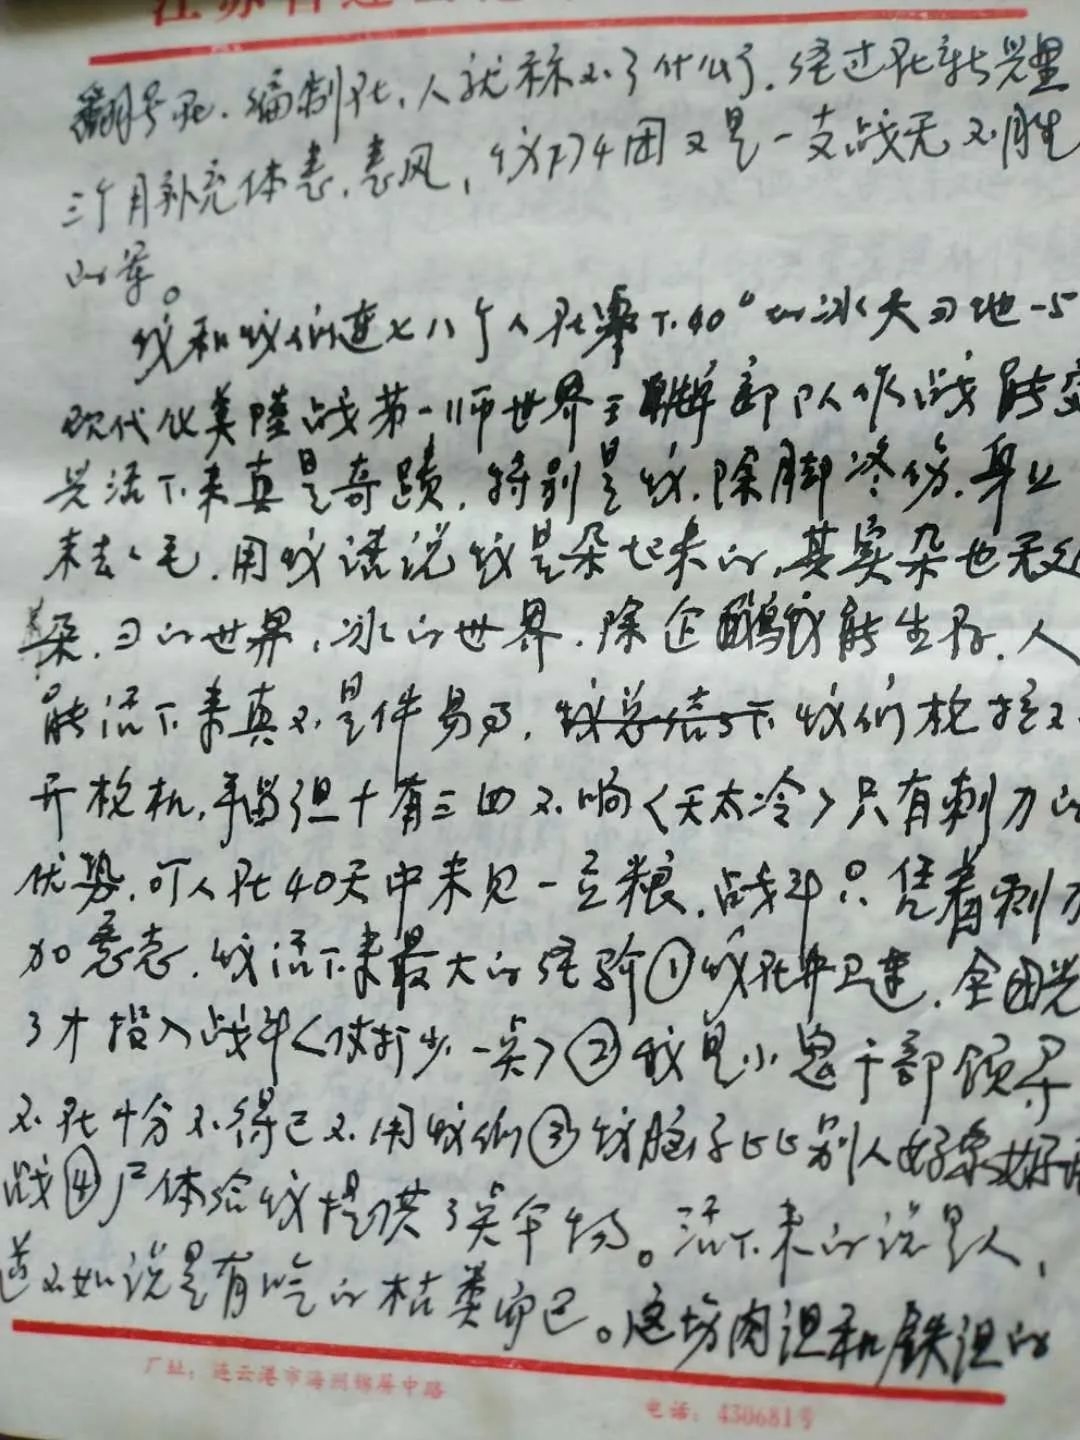 番号在.编制在,人就称不了什么了.经过在新兴里
三个月补充休息.息风,我174团又是一支战无不胜
的军。
我和我们连七八个人在零下40°的冰天雪地与
现代化美陆战第一师世界王牌部队作战能
活下来真是奇蹟.特别是我.除脚冻伤.身上
未去一毛.用我话说我是朵起来的,其实朵也无处
朵.雪的世界,冰的世界.除企鹅能生存.人
能活下来真不是件易事,我总结一下我们枪拉不
开枪机,手留弹十有三四不响<天太冷>只有刺刀的
优势.可人在40天中未见一豆粮.战斗只凭着刺刀
加意志.我活下来最大的经验①我在井卫连.全团光
了才投入战斗<仗打少一点>②我是小鬼干部领导
不在十分不得已不用我们③我脑子比比别人好
战④尸体给我提供了实牢物。活下来的说是人,
道不如说是有吃的枯类而已。这场肉诅和铁诅的
厂址:连云港市海州锦屏中路
电话:430681号